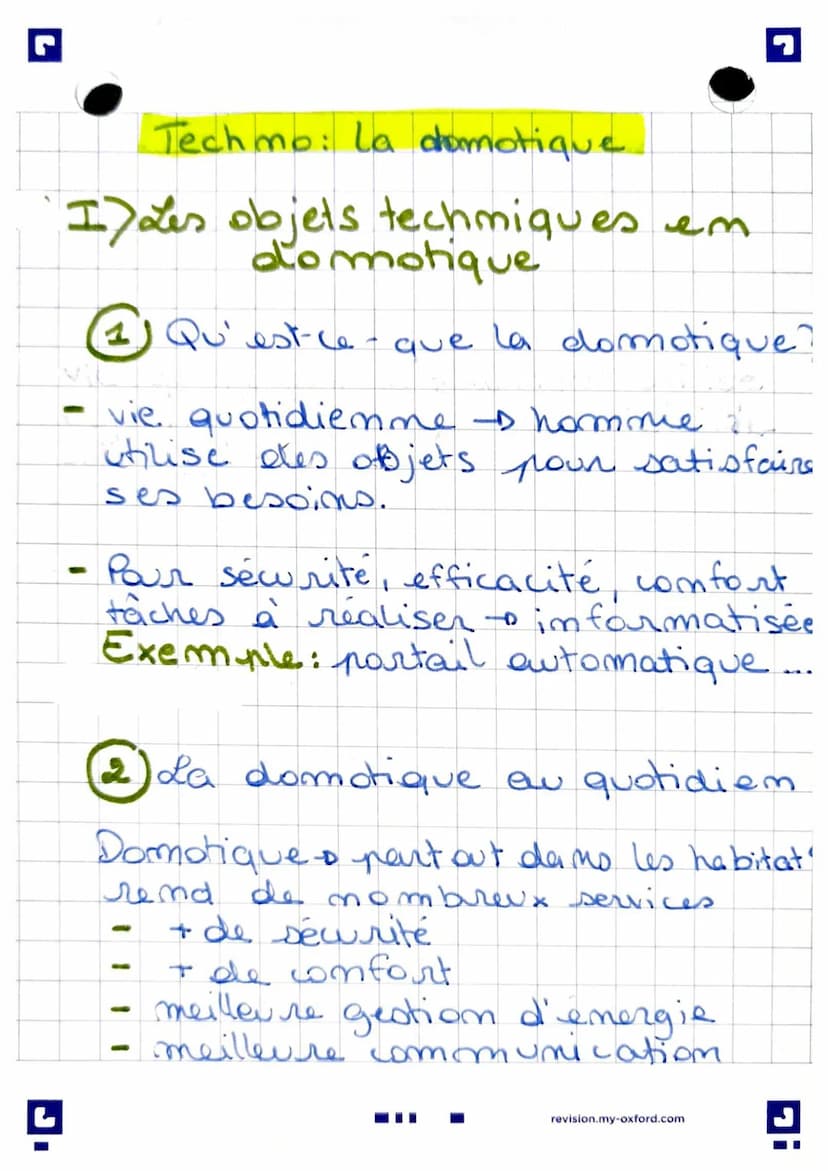 Techno: La domotique
I) Les objets techniques en
domotique
1 Qu'est-ce-que la domotique?
- vie quotidienne → homme
utilise des objets pour satisfaire
ses besoins.
- Pour sécurité, efficacité, confort
tâches à réaliser → informatisée
Exemple: portail automatique ...
2 La domotique au quotidien
Domotique → partout dans les habitat
rend de nombreux services
- + de sécurité
- + de confort
- meilleure gestion d'énergie
- meilleure communication
revision.my-oxford.com